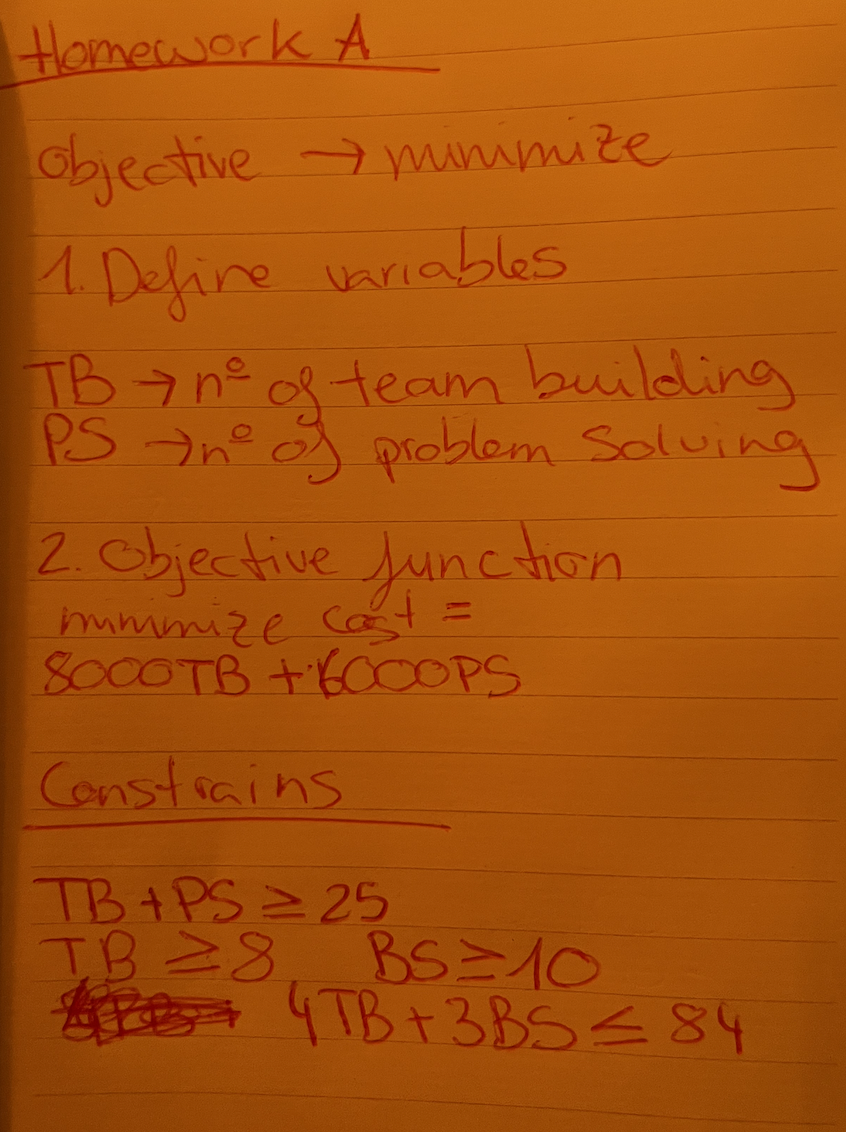 Homework A
Objective → minimize
1. Define variables
TB → nº of team building
PS → nº of problem solving
2. Objective function
minimize cost =
8000TB + 6000PS
Constrains
TB + PS ≥ 25
TB ≥ 8 BS ≥ 10
4TB + 3BS ≤ 84